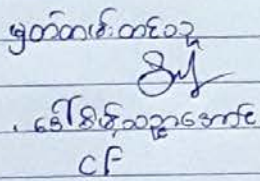 မှတ်တမ်းတင်သူ
ဒေါ်စိန့်သဉ္ဇာအောင်
CF